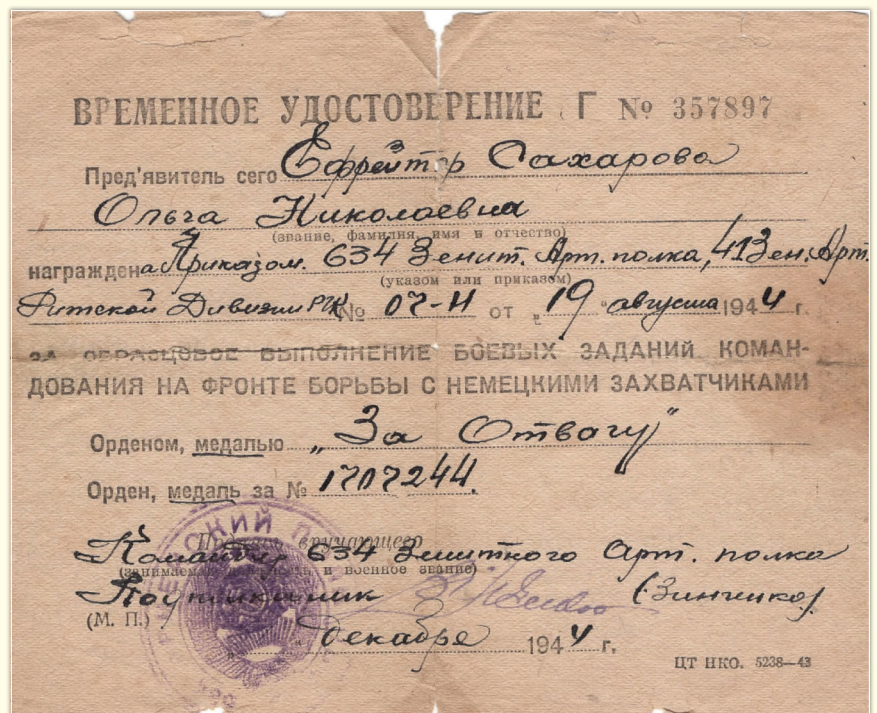 ВРЕМЕННОЕ УДОСТОВЕРЕНИЕ Г № 357897
Пред'явитель сего Ефрейтор Сахарова
Ольга Николаевна
(звание, фамилия, имя и отчество)
награждена Приказом. 634 Зенит. Арт. полка, 41 Зен. Арт.
(указом или приказом)
Дивизии РГК № 07-Н от „19" августа 1944 г.
ЗА ОБРАЗЦОВОЕ ВЫПОЛНЕНИЕ БОЕВЫХ ЗАДАНИЙ КОМАН-
ДОВАНИЯ НА ФРОНТЕ БОРЬБЫ С НЕМЕЦКИМИ ЗАХВАТЧИКАМИ
Орденом, медалью „За Отвагу"
Орден, медаль за № 1707244
Подпись вручающего
Командир 634 Зенитного Арт. полка
(занимаемая должность и военное звание)
Подполковник (Зинченко)
(М. П.)
" декабря 1944 г.
ЦТ НКО. 5238—43